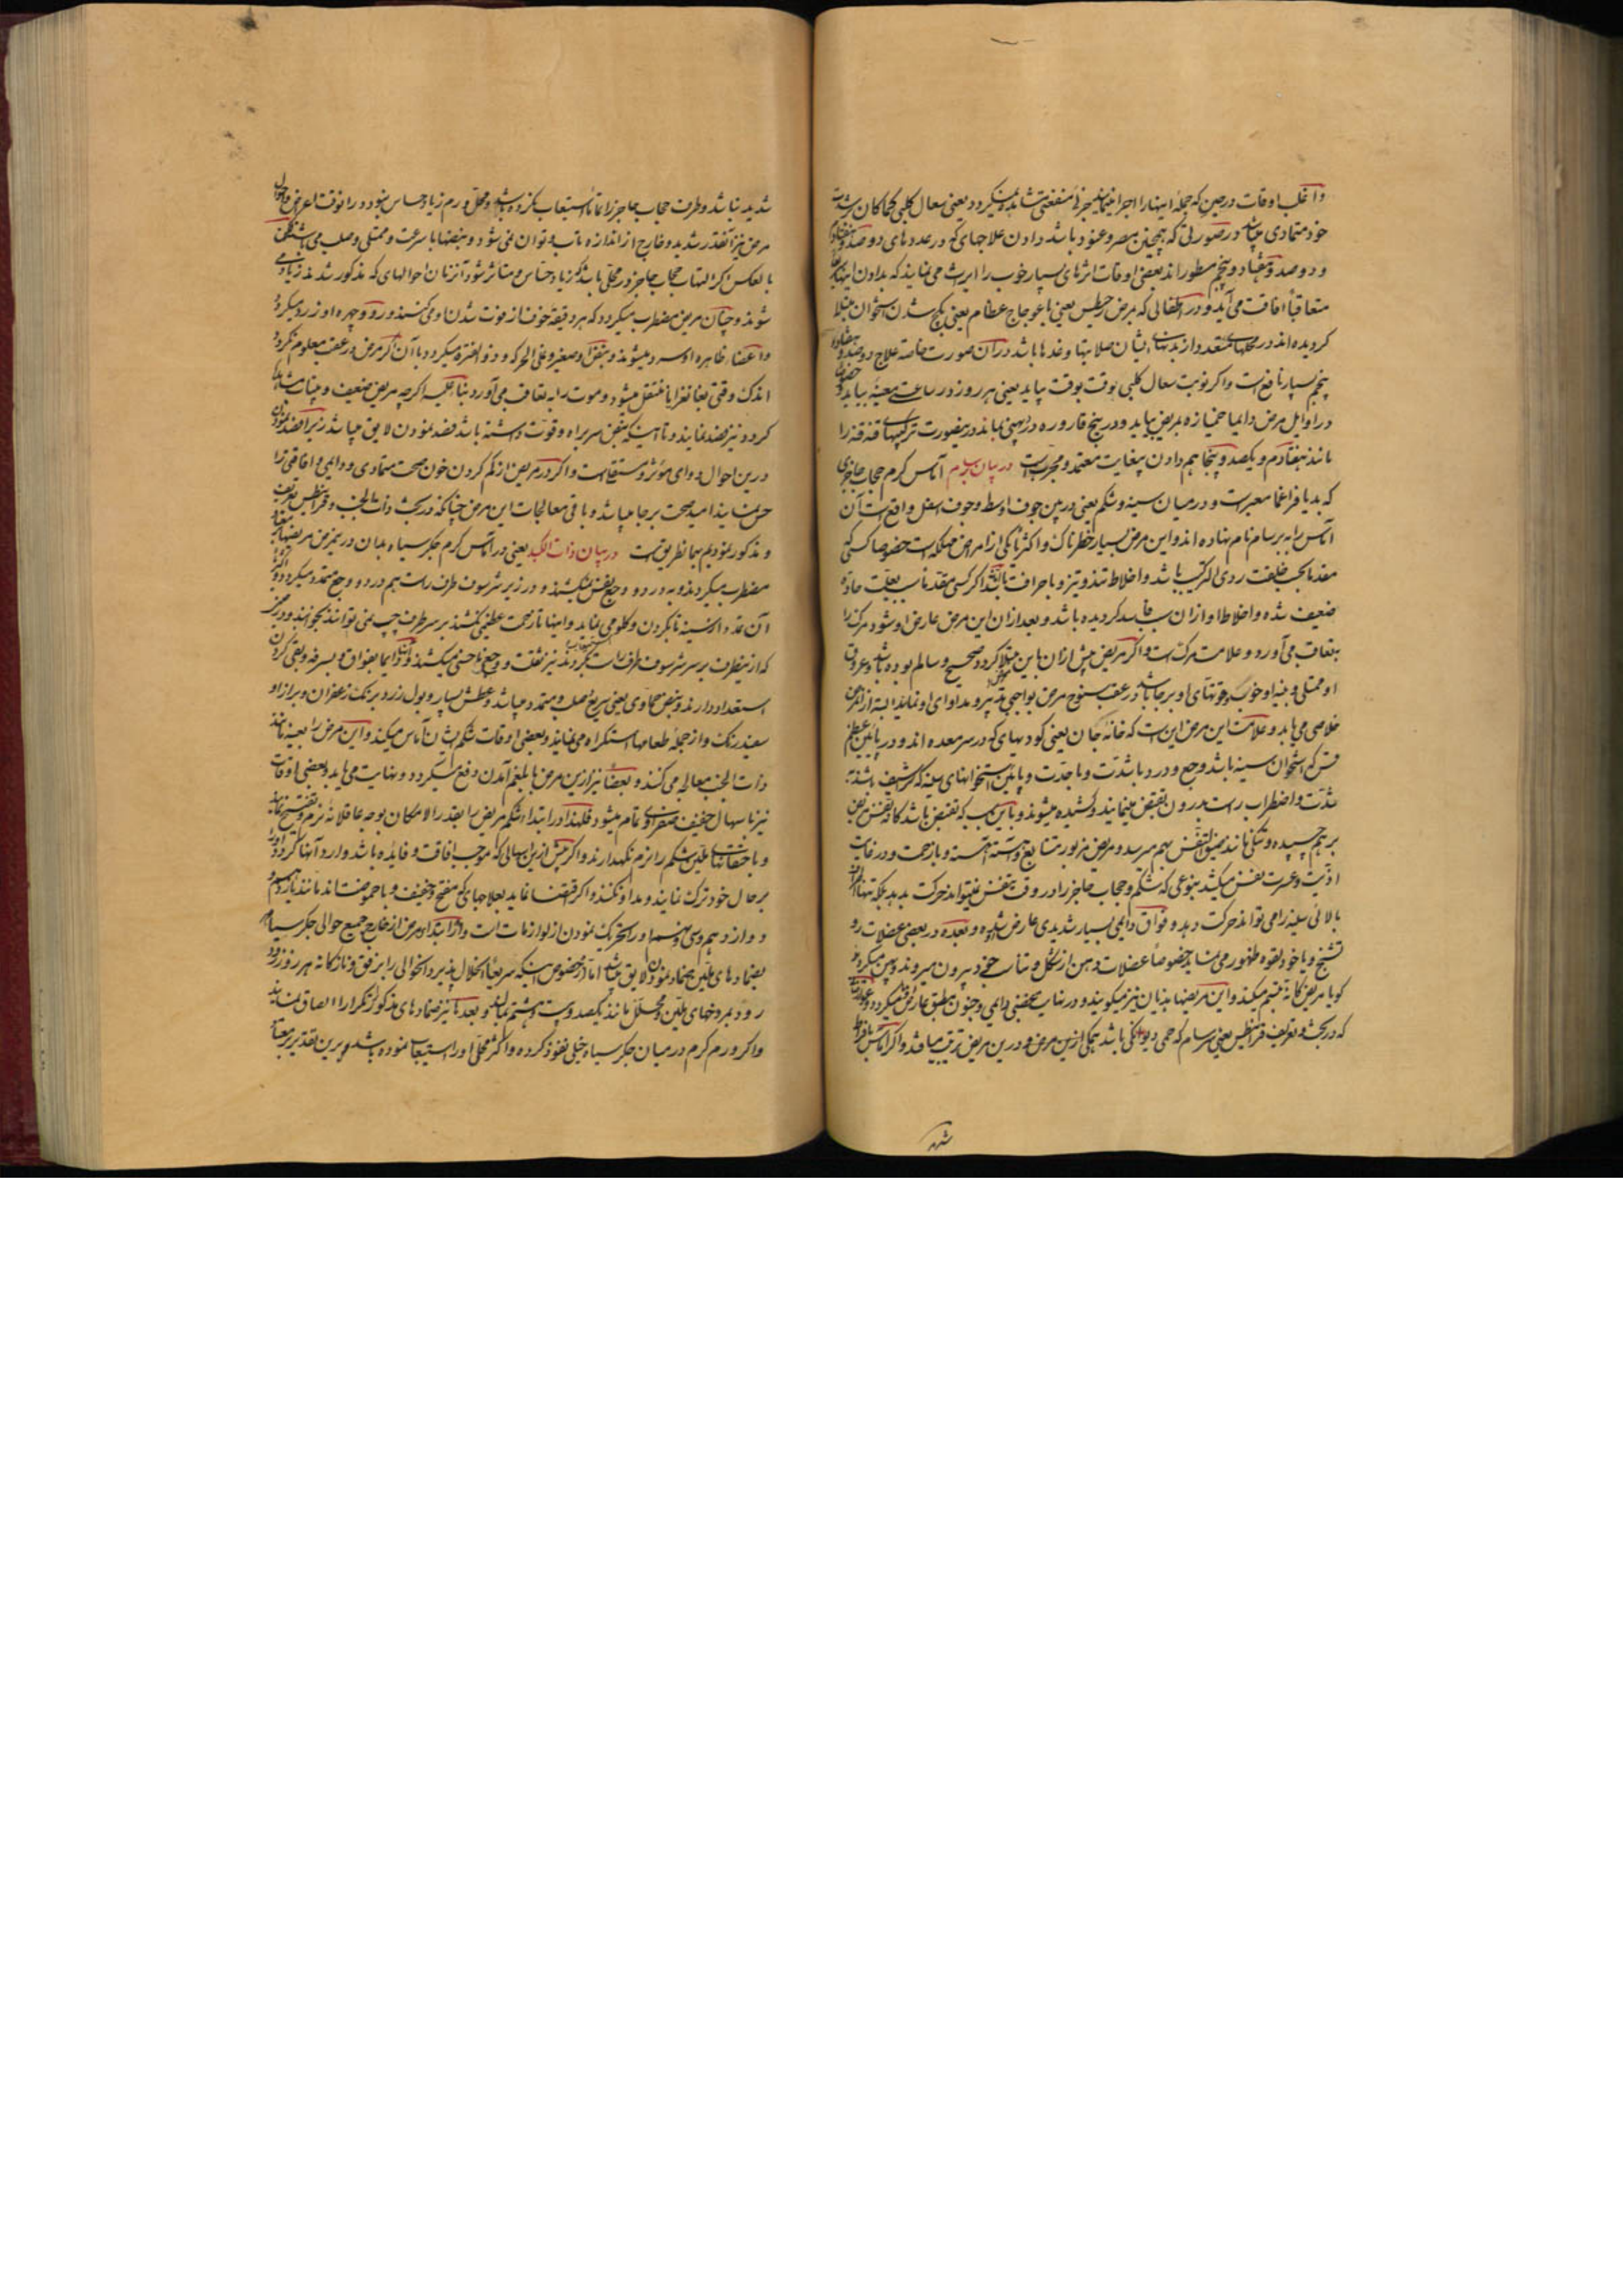 و اغلب اوقات در حین که جمله اینها را اجرا نمایند جزئی منفعتی مشاهده نمیکردد یعنی سعال کلبی کماکان بر شدت
خود متمادی میباشد در صورتی که همچنین مصر و عنود باشد دادن علاجهای که در عددهای دو صد و هفتاد
و دو صد و هفتاد و پنجم مسطور اند بعضی اوقات اثرهای بسیار خوب را ایراث می نمایند که بدادن اینها
متعاقباً افاقت می آید و در اطفالی که بمرض یعنی باعوجاج عظام یعنی کج شدن استخوان مبتلا
کردیده اند در محلهای متعدد از بدنهای ایشان صلابتها و غددها باشد در آن صورت خاصة علاج دو صد و هفتاد و
پنجم بسیار نافع است و اکر نوبت سعال کلبی بوقت بوقت بیاید یعنی هر روز در ساعت معینه بیاید و
در اوایل مرض دایما خمیازه بمریض بیاید و در بیخ قاروره در بماند در ینصورت ترکیبهای قنه قنه را
مانند هفتادم و یکصد و پنجاهم دادن بغایت معتمد و مجربست در بیان برسام آماس کرم حجاب حاجزی
که بدیافراغما معبرست و در میان سینه و شکم یعنی در بین جوف اوسط و جوف اسفل واقع است آن
آماس را به برسام نام نهاده اند و این مرض بسیار خطرناک و اکثر یکی از امراض مهلکه است خصوصا کسی که
مقدما بحسب خلقت ردی الترکیب باشد و اخلاط تند و تیز و با حرافت باشد یا اکر کسی مقدما بسبب علت حاده
ضعیف شده و اخلاط او از آن سبب فاسد کردیده باشد و بعد از آن این مرض عارض او شود مرک را
بتعاقب می آورد و علامت مرکست و اکر مریض پیش از آن باین مبتلا کردد صحیح و سالم بوده باشد و عروق
او ممتلی و بنیه او خوب و قوتهای او بر جا باشد در عقب سنوح مرض بواجبی تدبیر و مداوای او نمایند البته از آن مرض
خلاصی می یابد و علامت این مرض این است که خانه جان یعنی کودیهای که در سر معده اند و در پائین عظم
قس که استخوان سینه باشد وجع و درد با شدت و با حدت و پائین استخوانهای سینه که شراسیف باشند
بشدت و اضطراب راست بدرون تقبض مینمایند و کشیده میشوند و باین سبب که تقبض باشد کانه تنفس مریض
بر هم چسپیده و تنکی مانند ضیق النفس بهم میرسد و مریض مزبور متتابع و آهسته آهسته و بازحمت و در غایت
اذیت و عسرت نفس میکشد بنوعی که شکم و حجاب حاجز را در وقت تنفس نمیتواند حرکت بدهد بلکه تنها
بالائی سینه را می تواند حرکت دهد و فواق دایمی بسیار شدیدی عارض شده و بعده در بعضی عضلات رو
تشنج و یا خود لقوه ظهور می نماید خصوصاً عضلات دهن از شکل و تناسب خود بیرون میروند و پس میکردند
کویا مریض کانه تبسم میکند و این مریضها هذیان نیز میکویند و در نهایت بخفتنی دایمی و جنون مطبق عارض میکردد و
که در بحث و تعریف فرانیطیس یعنی سرسام که حمی دیوانکی باشد همکی از این مرض و در این مریض ترتب مییابند و اکر آماس بافراط
شدید
شدید نباشد و طرف حجاب حاجز را تماماً استیعاب نکرده باشد و محل ورم زیاد حساس نبود در آنوقت اعراض و احوال
مرض نیز آنقدر شدید و خارج از اندازه و تاب و توان نمی شود و نبضها با سرعت و ممتلی و صلب می باشند لکن
بالعکس اکر التهاب حجاب حاجز در محلی باشد که زیاد حساس و متاثر شود آنزمان احوالهای که مذکور شدند زیاد می
شوند و چنان مریض مضطرب میکردد که هر دقیقه خوف از فوت شدن او می کنند و رو و چهره او زرد میکردد
و اعضاء ظاهره او سرد میشوند و نبض او صغیر و علی الحرکه و ذو الفتره میکردد با آن اکر مرض در عقب معلوم نکردد
اندک وقتی بغانغرایا منتقل میشود و موت را به تعاقب می آورد بناءً علیه اکرچه مریض ضعیف و بیتاب مشاهده
کردد نیز فصد نمایند و تا اینکه نبض سر براه و قوت داشته باشد فصد نمودن لایق میباشد زیرا فصد نمودن
درین احوال دوای مؤثر و مستقل است و اکر در مریض از کم کردن خون صحت متمادی و دایمی و افاقتی را
حس نمایند امید صحت بر جا میباشد و باقی معالجات این مرض چنانکه در بحث ذات الجنب و فرانیطیس تعریف
و مذکور نمودیم بهمان طریق است در بیان ذات الکبد یعنی در آماس کرم جکر سیاه بدان در ینمرض مریضها
مضطرب میکردند و به درد و وجع نفس میکشند و در زیر شرسوف طرف راست هم درد و وجع ممتد میکردد و اکثر
آن ممتد از سینه تا بکردن و کلو می نماید و اینها تا زحمت عظیمی نکشند بر سر طرف چپ نمی توانند بخوابند و در
که از ینطرف بر سر شرسوف طرف راست بکردند نیز ثقلت و وجع ناخسی میکشند و دایما بفواق و بسرفه و بقی کردن
استعداد دارند و نبض حماوی یعنی سریع و صلب و ممتد میباشد و عطش بسیار و بول زرد برنک زعفران و براز او
سفید رنک و از جمله طعامها استکراه می نمایند و بعضی اوقات شکم ایشان آماس میکند و این مرض را بعینه مانند
ذات الجنب معالجه می کنند و بعضاً نیز ازین مرض با بلغم آمدن دفع میکردد و نهایت می یابد و بعضی اوقات
نیز باسهال خفیف صفراوی تمام میشود فلهذا در ابتدا شکم مریض را بقدر الامکان بوجه عاقلانه نرم و تفتیح نمایند
و با حقنهای ملین شکم را نرم نکهدارند و اکر پیش ازین اسهالی که موجب افاقت و فایده باشد وارد آنها کردد او را
بر حال خود ترک نمایند و مداوا نکنند و اکر اقتضا نماید بعلاجهای که مفتح و خفیف و با حموضت اند مانند یازدهم و
دوازدهم و سی و نهم او را تحریک نمودن از لوازمات است و از ابتدای مرض از خارج جمیع حوالی جکر سیاه
بضمادهای ملین تضمید نمودن لایق میباشد اما از خصوص اینکه سریعاً انحلال پذیرد آنحوالی را برفق و نازکانه هر روز زود
زود بمروخهای ملین و محلل مانند یکصد و بیست و هشتم بمالند و بعد ها نیز ضمادهای مذکور را تکرارا الصاق نمایند
و اکر ورم کرم در میان جکر سیاه خیلی نفوذ کرده و اکثر محل او را استیعاب نموده باشد برین تقدیر